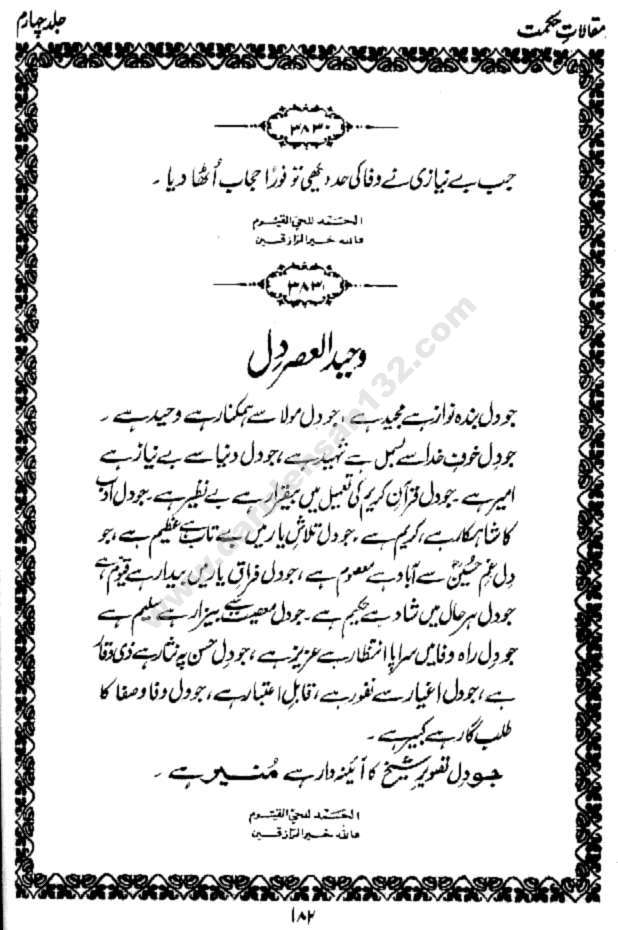 مقالاتِ حکمت
جلد چہارم
۳۸۳۰
جب بے نیازی نے وفا کی حد دیکھی تو فوراً حجاب اُٹھا دیا ۔
الحمد للحی القیوم
واللہ خیر الرازقین
۳۸۳۱
وحید العصر دِل
جو دل بندہ نواز ہے مجید ہے ، جو دل مولا سے ہمکنار ہے وحید ہے ۔
جو دل خوفِ خدا سے بسمل ہے شہید ہے ، جو دل دنیا سے بے نیاز ہے
امیر ہے ۔ جو دل قرآنِ کریم کی تعمیل میں بیقرار ہے بے نظیر ہے ۔ جو دل ادب
کا شاہکار ہے ، کریم ہے ۔ جو دل تلاشِ یار میں بے تاب ہے عظیم ہے ، جو
دل غمِ حسینؓ سے آباد ہے معصوم ہے ، جو دل فراقِ یار میں بیدار ہے قیوم ہے
جو دل ہر حال میں شاد ہے حکیم ہے ۔ جو دل معصیت سے بیزار ہے سلیم ہے
جو دل راہِ وفا میں سراپا انتظار ہے عزیز ہے ، جو دل حسن پہ نثار ہے ذی وقار
ہے ، جو دل اغیار سے نفور ہے ، قابلِ اعتبار ہے ، جو دل وفا و صفا کا
طلب گار ہے کبیر ہے ۔
جو دل تصویرِ شیخ کا آئینہ دار ہے مُنیر ہے ۔
الحمد للحی القیوم
واللہ خیر الرازقین
۱۸۲